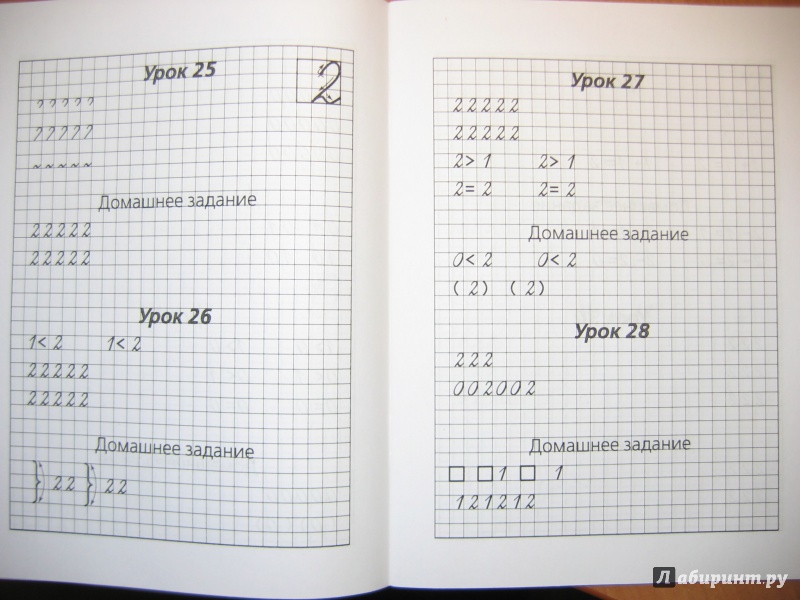 Урок 25
2
2 2 2 2 2
2 2 2 2 2
~ ~ ~ ~ ~
Домашнее задание
2 2 2 2 2
2 2 2 2 2
Урок 26
1 < 2 1 < 2
2 2 2 2 2
2 2 2 2 2
Домашнее задание
} 2 2 } 2 2
Урок 27
2 2 2 2 2
2 2 2 2 2
2 > 1 2 > 1
2 = 2 2 = 2
Домашнее задание
0 < 2 0 < 2
( 2 ) ( 2 )
Урок 28
2 2 2
0 0 2 0 0 2
Домашнее задание
□ □ 1 □ 1
1 2 1 2 1 2
Лабиринт.ру